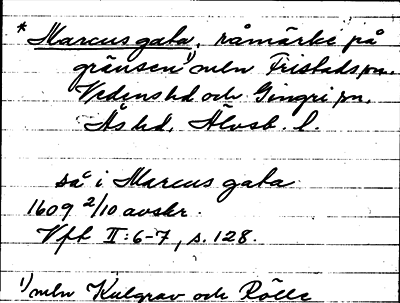 * Marcus gata, råmärke på
gränsen¹⁾ mln Fristads sn.
Vedens hd och Gingri sn,
Ås hd, Älvsb. l.
så i Marcus gata
1609 2/10 avskr.
Vft II:6-7, s. 128.
¹⁾ mln Kulgrav och Rölle